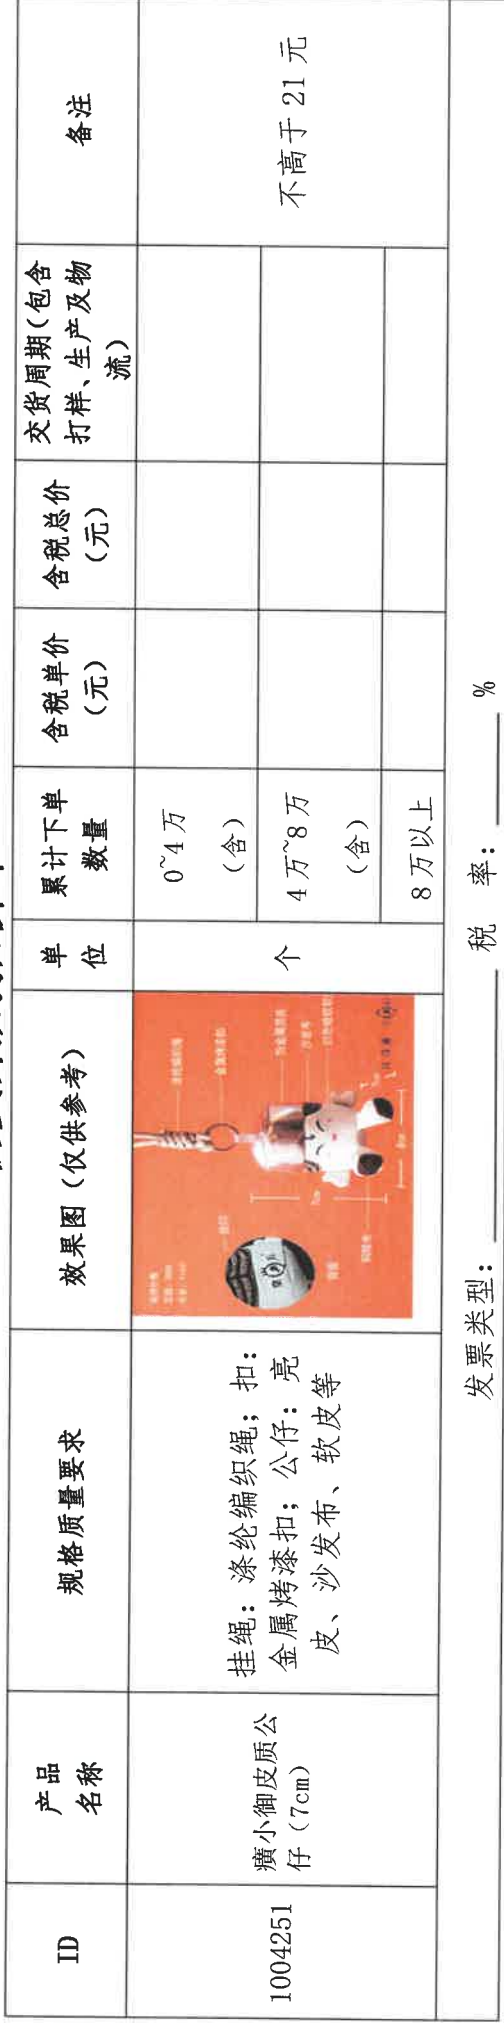 ID
产品
名称
规格质量要求
效果图（仅供参考）
单
位
累计下单
数量
含税单价
（元）
含税总价
（元）
交货周期（包含
打样、生产及物
流）
备注
1004251
小御皮质公
仔（7cm）
挂绳：涤纶编织绳；扣：
金属烤漆扣；公仔：亮
皮、沙发布、软皮等
个
0~4 万
（含）
4 万~8 万
（含）
8 万以上
不高于 21 元
发票类型：
税 率： %